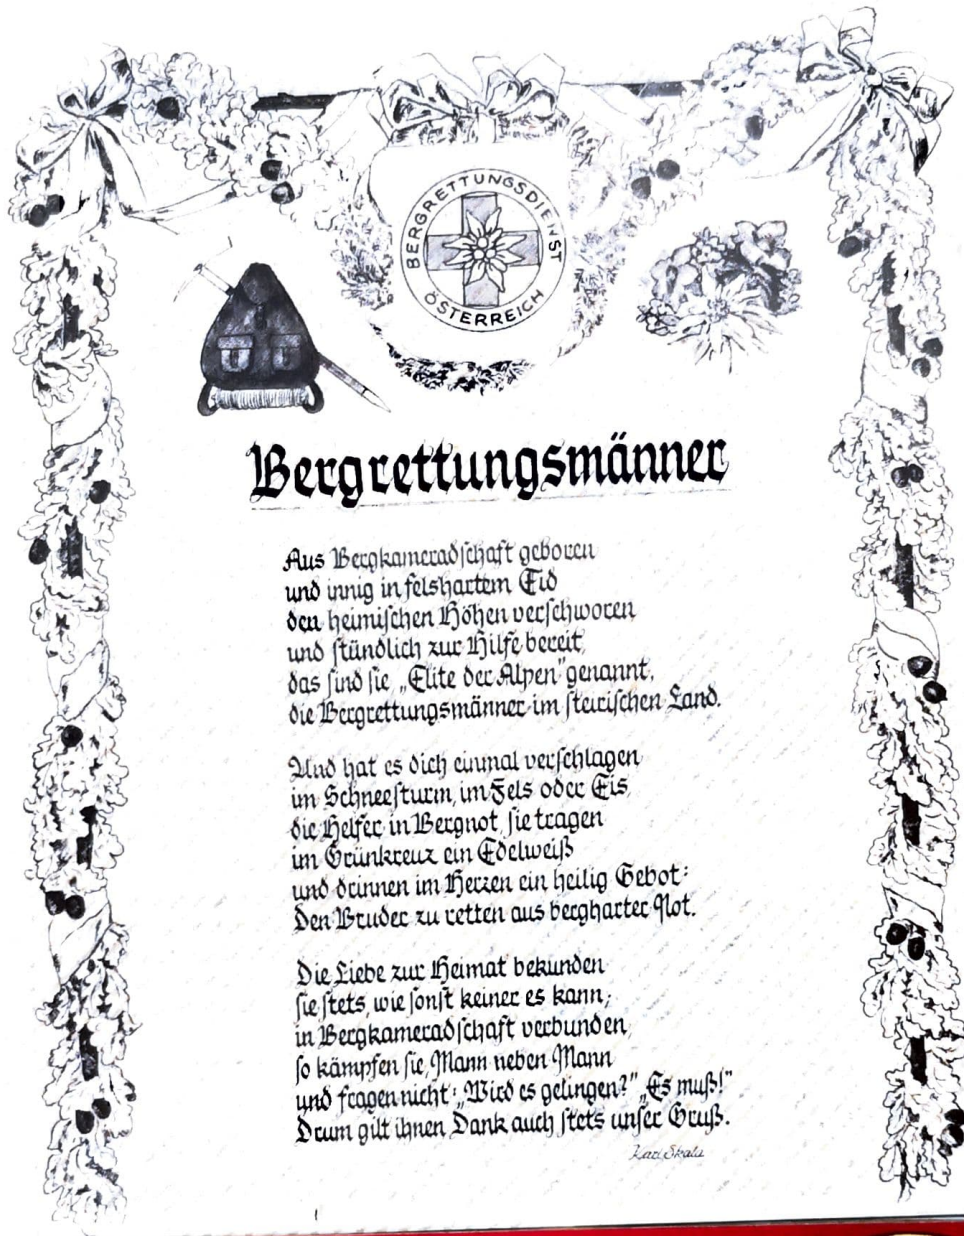 BERGRETTUNGSDIENST
ÖSTERREICH
Bergrettungsmänner
Aus Bergkameradschaft geboren
und innig in felshartem Eid
den heimischen Höhen verschworen,
und stündlich zur Hilfe bereit,
das sind sie „Elite der Alpen" genannt,
die Bergrettungsmänner im steirischen Land.
Und hat es dich einmal verschlagen
im Schneesturm, im Fels oder Eis,
die Helfer in Bergnot, sie tragen
im Grünkreuz ein Edelweiß
und drinnen im Herzen ein heilig Gebot:
Den Bruder zu retten aus bergharter Not.
Die Liebe zur Heimat bekunden
sie stets, wie sonst keiner es kann,
in Bergkameradschaft verbunden,
so kämpfen sie, Mann neben Mann
und fragen nicht: „Wird es gelingen?" „Es muß!"
Drum gilt ihnen Dank auch stets unser Gruß.
Skala